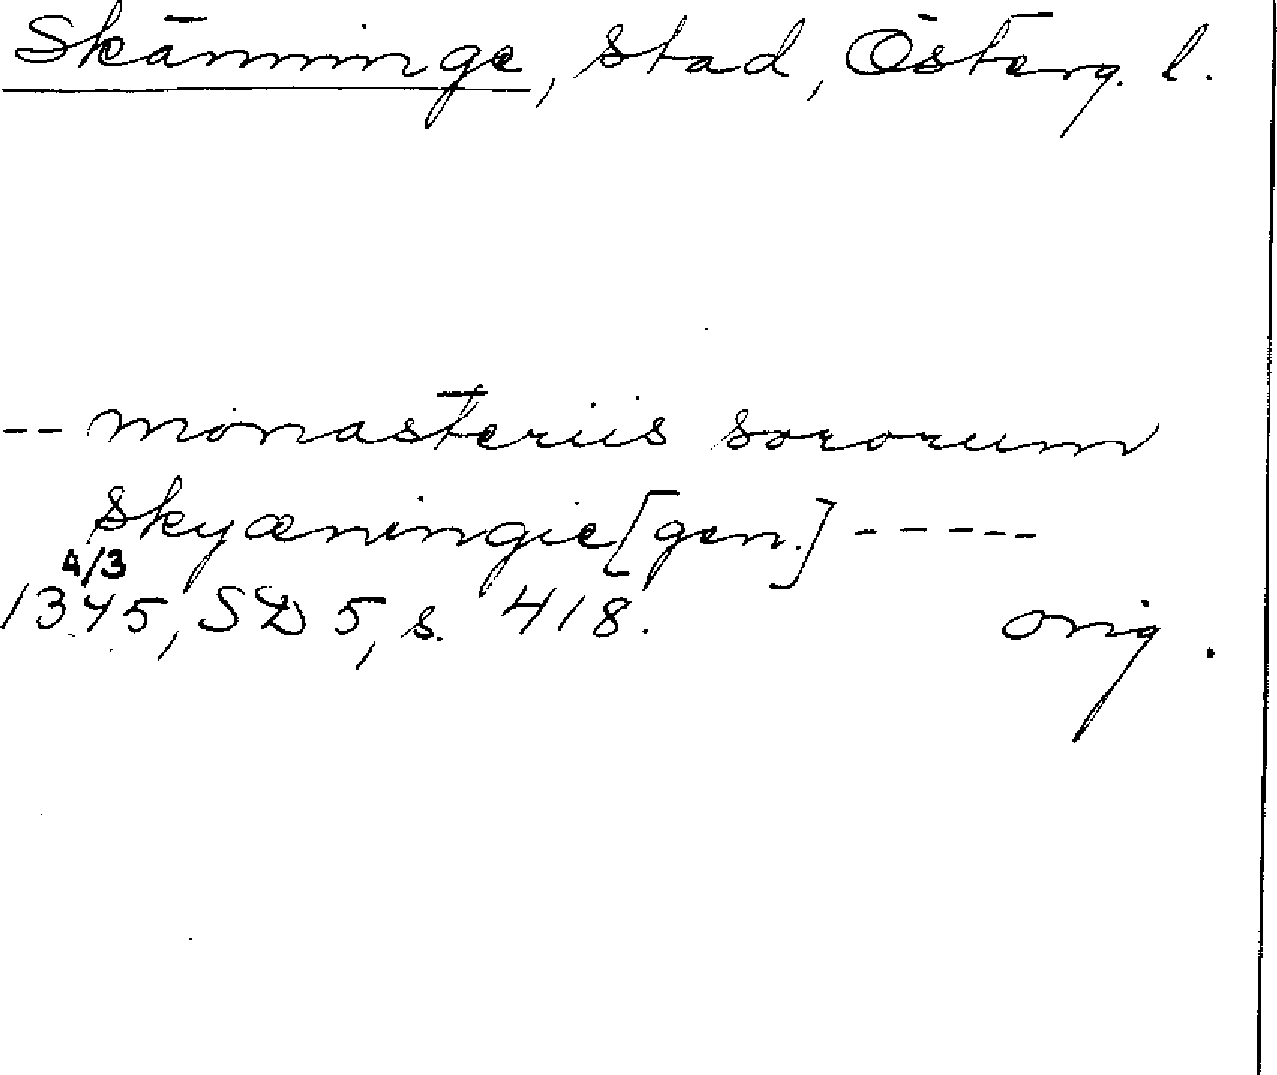 Skänninge, stad, Österg. l.
-- monasteriis sororum
skyæningie [gen.] -----
4/3
1345, SD 5, s. 418. orig.